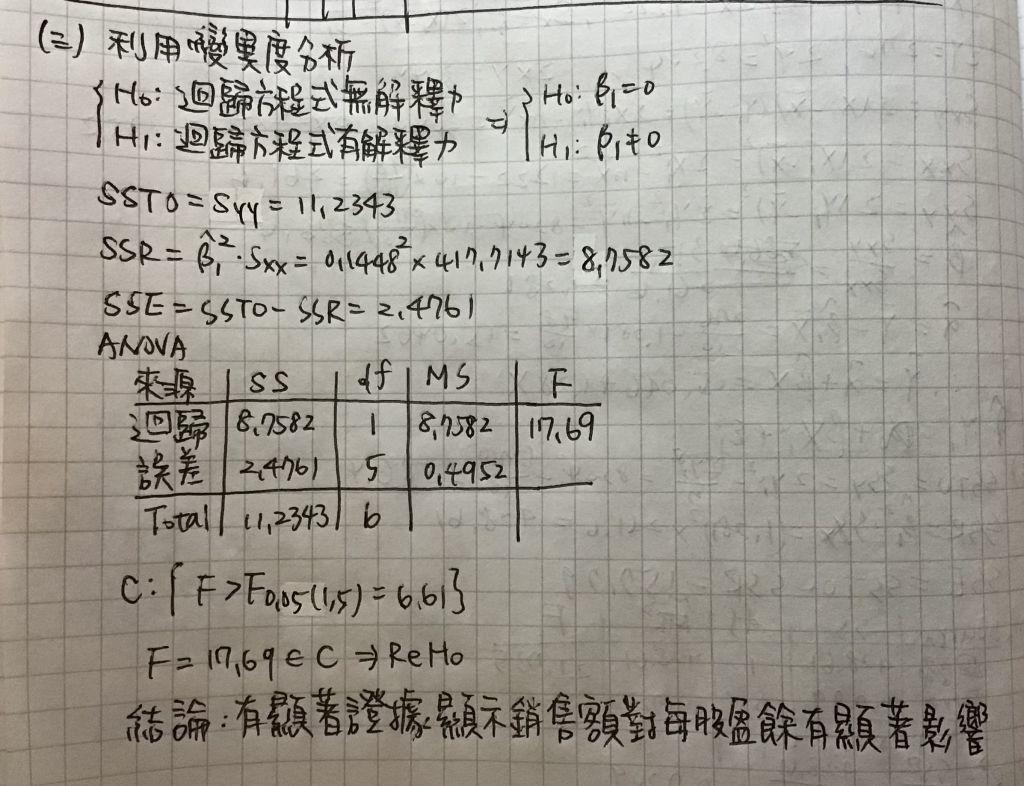 (三) 利用變異度分析
{ H₀: 迴歸方程式無解釋力 ⇒ { H₀: β₁=0
H₁: 迴歸方程式有解釋力 H₁: β₁≠0
SSTO = Syy = 11.2343
SSR = β̂₁²·Sxx = 0.1448² × 417.7143 = 8.7582
SSE = SSTO - SSR = 2.4761
ANOVA
來源 SS df MS F
迴歸 8.7582 1 8.7582 17.69
誤差 2.4761 5 0.4952
Total 11.2343 6
C: { F > F0.05(1,5) = 6.61 }
F = 17.69 ∈ C ⇒ Re H₀
結論: 有顯著證據顯示銷售額對每股盈餘有顯著影響